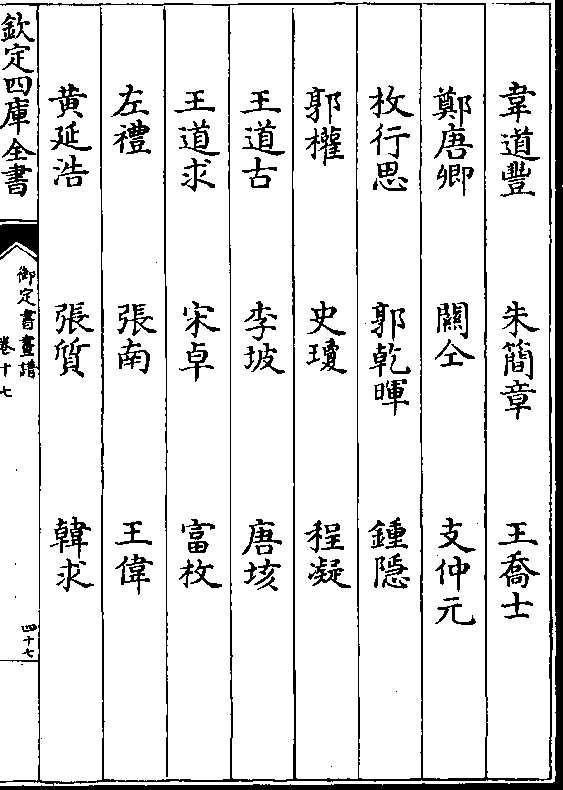 韋道豐　朱簡章　王喬士
鄭唐卿　關仝　支仲元
枚行思　郭乾暉　鍾隱
郭權　史瓊　程凝
王道古　李坡　唐垓
王道求　宋卓　富枚
左禮　張南　王偉
黃延浩　張質　韓求
欽定四庫全書
御定書畫譜
卷十七
四十七